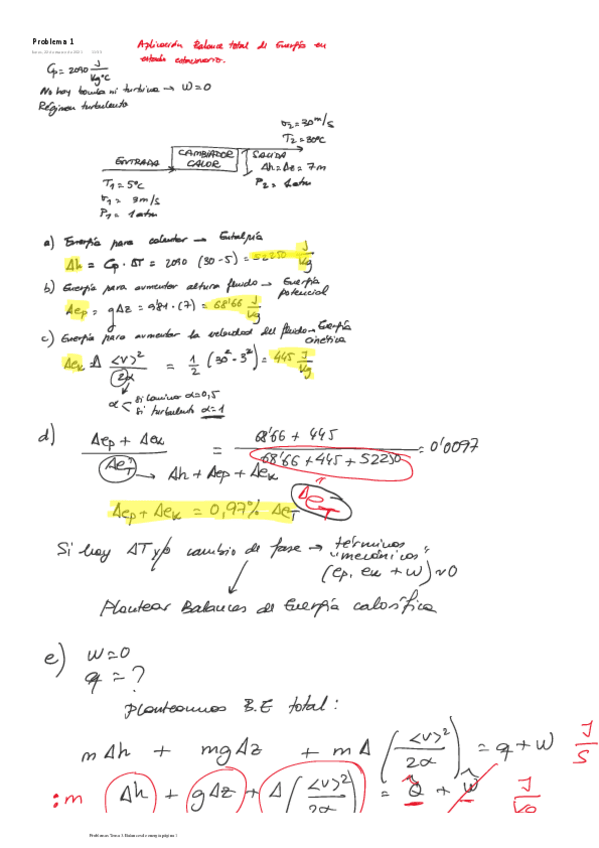 Problema 1
Aplicación Balance total de Energía en
estado estacionario.
Cp = 2090 J/Kg°C
No hay bomba ni turbina → W=0
Régimen turbulento
v2 = 30 m/s
T2 = 30°C
ENTRADA
CAMBIADOR
CALOR
SALIDA
Δh = Δz = 7m
P2 = 1 atm
T1 = 5°C
v1 = 3 m/s
P1 = 1 atm
a) Energía para calentar → Entalpía
Δh = Cp · ΔT = 2090 (30-5) = 52250 J/Kg
b) Energía para aumentar altura fluido → Energía
potencial
Δep = gΔz = 9'81 · (7) = 68'66 J/Kg
c) Energía para aumentar la velocidad del fluido → Energía
cinética
Δek = Δ <v>²/2α = 1/2 (30² - 3²) = 445 J/Kg
α < si laminar α=0,5
si turbulento α=1
d) (Δep + Δek)/ΔeT = (68'66 + 445)/(68'66 + 445 + 52250) = 0'0097
→ Δh + Δep + Δek
ΔeT
Δep + Δek = 0,97% ΔeT
Si hay ΔT y/o cambio de fase → términos
"mecánicos"
(ep, ek + w) ≈ 0
Plantear Balances de Energía calorífica
e) w=0
q = ?
Planteamos B.E total:
mΔh + mgΔz + mΔ(<v>²/2α) = q + w J/S
:m Δh + gΔz + Δ(<v>²/2α) = Q̂ + ŵ J/Kg